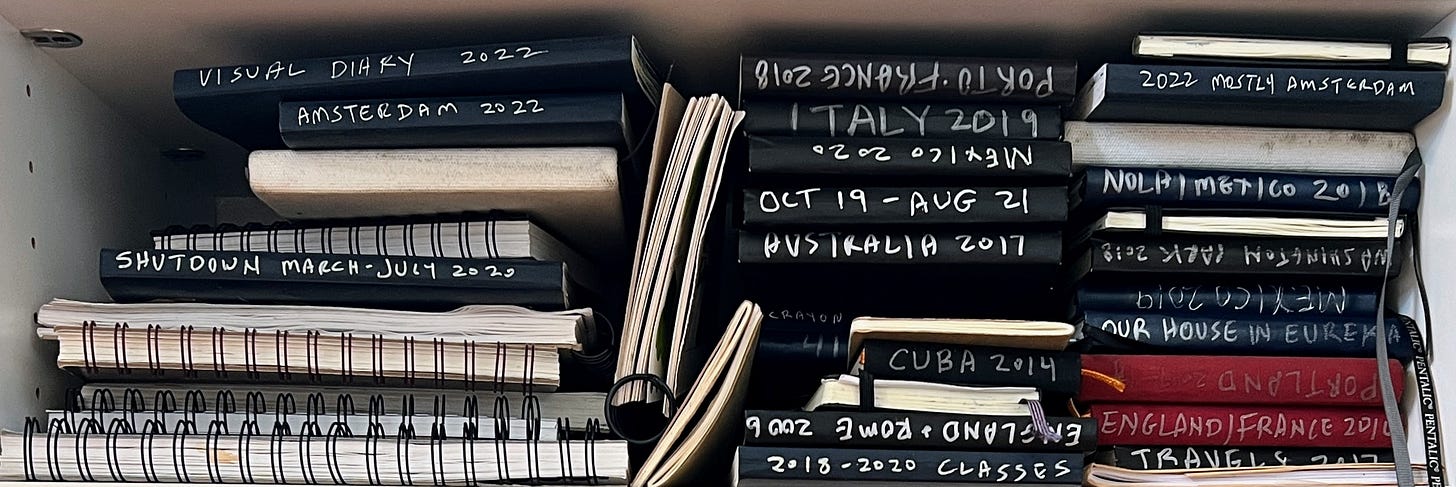 VISUAL DIARY 2022
AMSTERDAM 2022
SHUTDOWN MARCH-JULY 2020
PORTO・FRANCE 2018
ITALY 2019
MEXICO 2020
OCT 19 - AUG 21
AUSTRALIA 2017
CRAYON
CUBA 2014
ENGLAND + ROME 2006
2018-2020 CLASSES
2022 MOSTLY AMSTERDAM
NOLA/MEXICO 2018
WASHINGTON PARK 2018
MEXICO 2019
OUR HOUSE IN EUREKA
PORTLAND
ENGLAND/FRANCE
TRAVELS 2017
PENTALIC PENTALIC